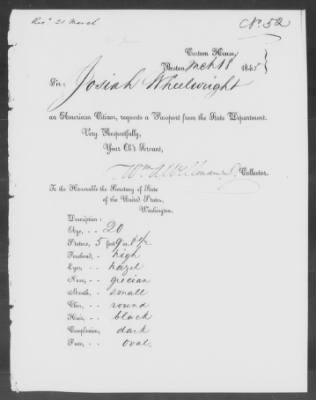 Rec'd 21 March
No. 52
Custom House,
Boston, Mch 18 1845
Sir:
Josiah Wheelwright
an American Citizen, requests a Passport from the State Department.
Very Respectfully,
Your Ob't Servant,
Collector.
To the Honorable the Secretary of State
of the United States,
Washington.
Description:
Age, - - 20
Stature, 5 feet 9 1/2
Forehead, - high
Eyes, - - hazel
Nose, - - grecian
Mouth, - - small
Chin, - - round
Hair, - - black
Complexion, dark
Face, - - oval.